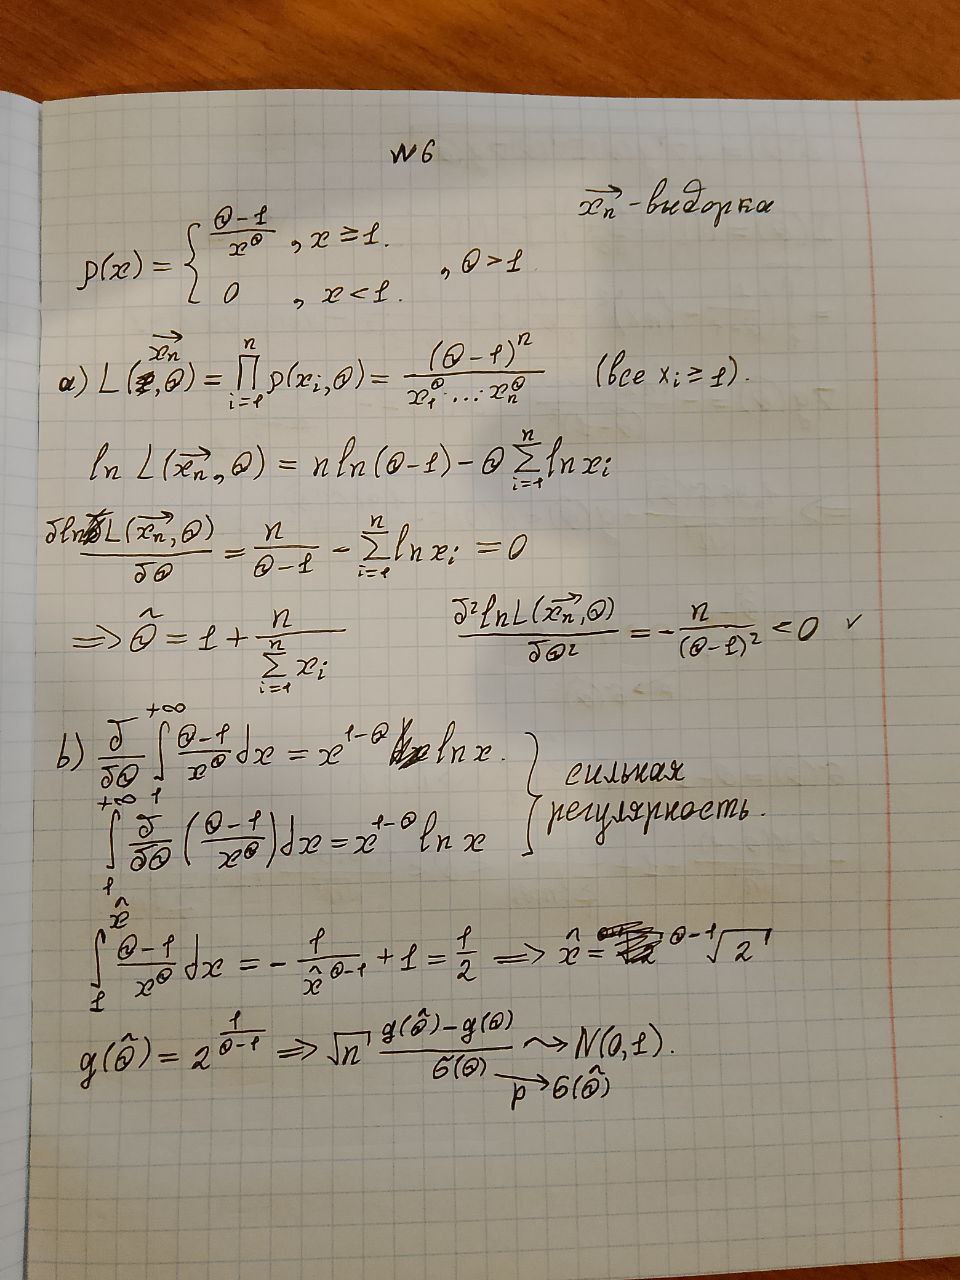 №6
x⃗ₙ - выборка
p(x) = { (θ-1)/x^θ , x ≥ 1.
0 , x < 1. , θ > 1
a) L(x⃗ₙ, θ) = ∏_{i=1}^{n} p(xᵢ, θ) = (θ-1)^n / (x₁^θ · ... · xₙ^θ) (все xᵢ ≥ 1).
ln L(x⃗ₙ, θ) = n ln(θ-1) - θ ∑_{i=1}^{n} ln xᵢ
∂ln L(x⃗ₙ, θ)/∂θ = n/(θ-1) - ∑_{i=1}^{n} ln xᵢ = 0
=> θ̃ = 1 + n/(∑_{i=1}^{n} xᵢ) ∂²ln L(x⃗ₙ, θ)/∂θ² = - n/(θ-1)² < 0 ✓
b) ∂/∂θ ∫_{1}^{+∞} (θ-1)/x^θ dx = x^{1-θ} ln x.
∫_{1}^{+∞} ∂/∂θ ((θ-1)/x^θ) dx = x^{1-θ} ln x } сильная
регулярность.
∫_{1}^{x̂} (θ-1)/x^θ dx = - 1/x̂^{θ-1} + 1 = 1/2 => x̂ = ^{θ-1}√2
g(θ̂) = 2^{1/(θ-1)} => √n (g(θ̂) - g(θ))/σ(θ) ⇝ N(0,1).
p→ σ(θ̂)